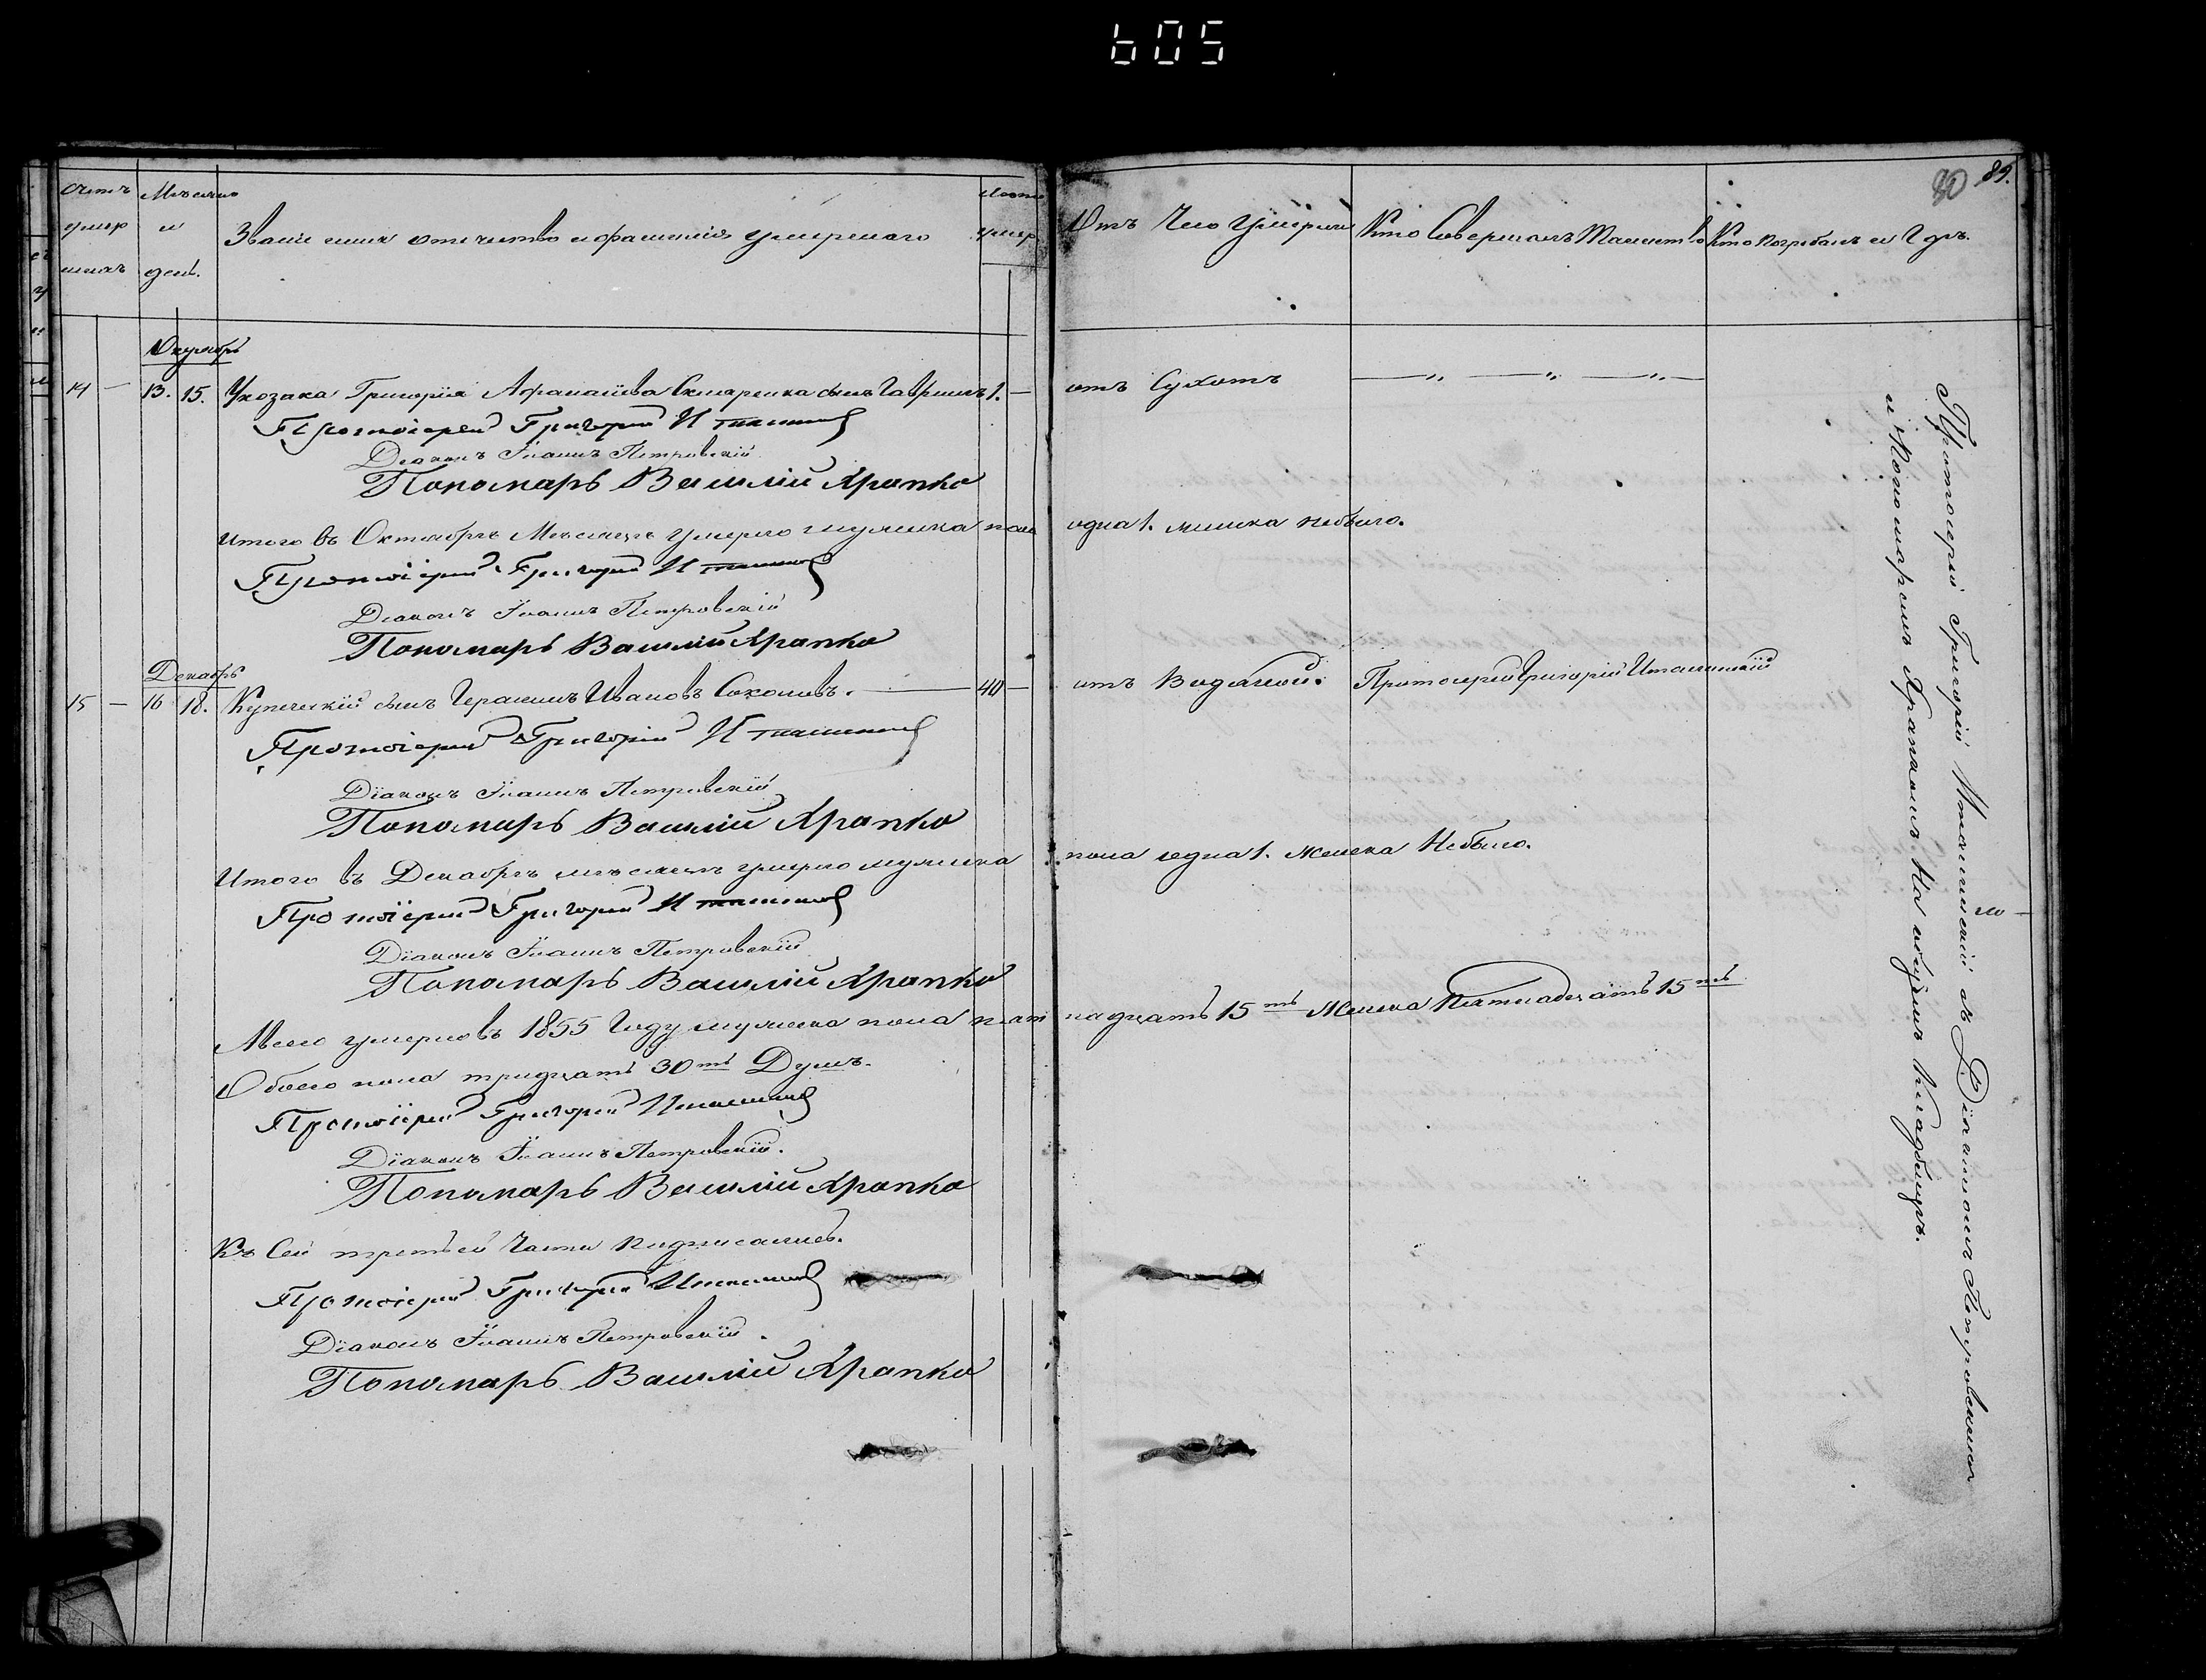 605
Счетъ умершихъ
Мѣсяцъ и день.
Званіе имя отечество и фамилія умершаго
Лета умер
Отъ Чего Умерши
Кто Совершалъ Таинство
Кто погребалъ и Где.
89.
Октябрь
14 — 13. 15. Укозака Григорія Афанасіева сынъ Гавріилъ 1. — отъ Сухотъ
Протоіерей Григорій
Діаконъ Іоаннъ Петровскій
Пономарь Василій Храпко
Итого въ Октябрѣ Месяцѣ умерло мужеска пола одна 1. женска небыло.
Протоіерей Григорій
Діаконъ Іоаннъ Петровскій
Пономарь Василій Храпко
Декабрь
15 — 16 18. Купеческій сынъ Герасимъ Ивановъ Соколовъ. — 40 — отъ Водяной. Протоиерей Григорій
Протоіерей Григорій
Діаконъ Іоаннъ Петровскій
Пономарь Василій Храпко
Итого въ Декабрѣ месяцѣ умерло мужеска пола одна 1. женска Небыло.
Протоіерей Григорій
Діаконъ Іоаннъ Петровскій
Пономарь Василій Храпко
Авсего умерло въ 1855 Году мужеска пола пятнадцать 15ть Женска Пятнадцать 15ть
Обоего пола тридцать 30ть Душъ.
Протоіерей Григорій
Діаконъ Іоаннъ Петровскій.
Пономарь Василій Храпко
Къ Сей третьей Части подписались.
Протоіерей Григорій
Діаконъ Іоаннъ Петровскій.
Пономарь Василій Храпко
Протоиерей Григорій съ Діакономъ Петровскимъ
и Пономаремъ Храпкомъ. На общемъ Кладбищѣ.